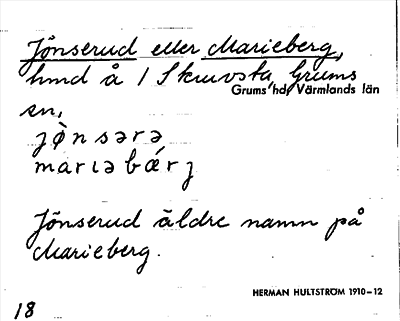 Jönserud eller Marieberg,
hmd å 1 Skruvsta, Grums
Grums hd, Värmlands län
sn,
jö̀nsərə
marıəbǽrj
Jönserud äldre namn på
Marieberg.
HERMAN HULTSTRÖM 1910-12
18